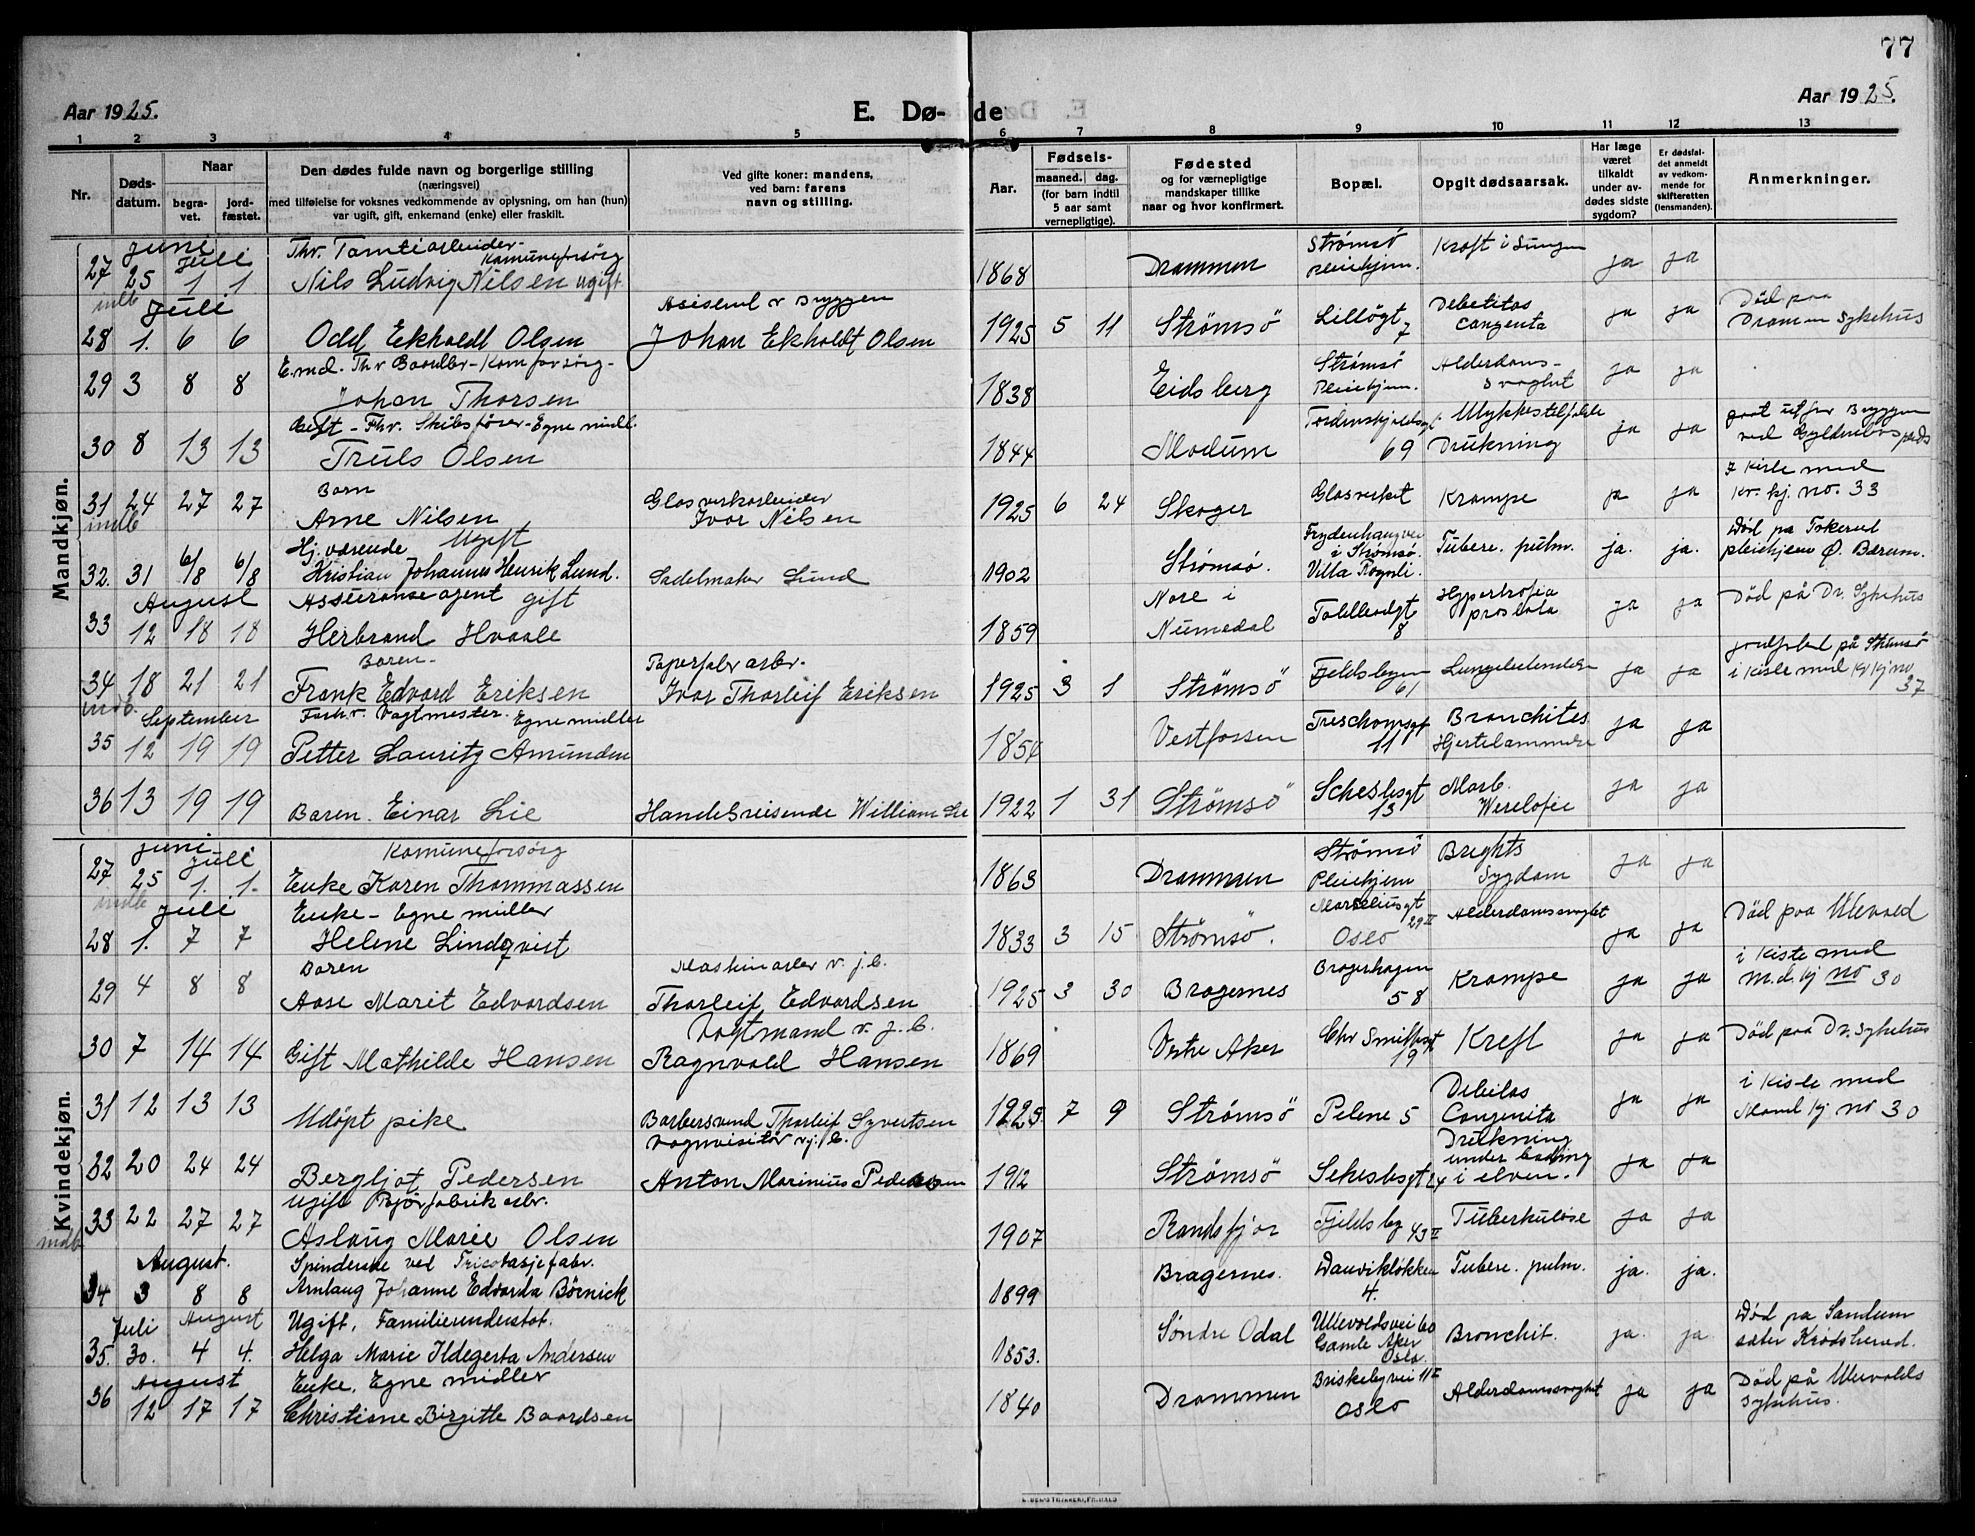 77
Aar 1925.
E. Dø-
de
Aar 1925.
1 2 3 4 5 6 7 8 9 10 11 12 13
Nr.
Døds-
datum.
Naar
begra-
vet.
jord-
fæstet.
Den dødes fulde navn og borgerlige stilling
(næringsvei)
med tilføielse for voksnes vedkommende av oplysning, om han (hun)
var ugift, gift, enkemand (enke) eller fraskilt.
Ved gifte koner: mandens,
ved barn: farens
navn og stilling.
Aar.
Fødsels-
maaned. dag.
(for barn indtil
5 aar samt
vernepligtige).
Fødested
og for værnepligtige
mandskaper tillike
naar og hvor konfirmert.
Bopæl.
Opgit dødsaarsak.
Har læge
været
tilkaldt
under av-
dødes sidste
sygdom?
Er dødsfal-
det anmeldt
av vedkom-
mende for
skifteretten
(lensmanden).
Anmerkninger.
Mandkjøn.
Juni Juli
Komuneforsørg
27 25 1 1 Nils Ludvig Nilsen ugift 1868 Drammen Strømsø Pleiehjem. ja ja
indb
Juli
28 1. 6 6 Odd Ekholdt Olsen Johan Ekholdt Olsen 1925 5 11 Strømsø Lilløgt 7 Debilitas Congenita ja ja Død paa
Dramen Sykehus
29 3 8 8 Johan Thorsen 1838 Eidsberg Strømsø Pleiehjem. Alderdoms-svaghet ja ja
Gift - Fhv. Skibsfører - Egne midl.
30 8 13 13 Truls Olsen 1844 Modum Tordenskjoldsgt 69 Ulykkestilfælde Drukning ja ja
Barn
Glasverkarbeider
31 24 27 27 Arne Nilsen Ivar Nilsen 1925 6 24 Skoger Glasverket Krampe ja ja I Kiste med
Kv. kj. no. 33
indb
Hj. værende Ugift
32. 31 6/8 6/8 Kristian Johannes Henrik Lund. Sadelmaker Lund 1902 Strømsø. i Strømsø. Villa Rognli. Tuberc. pulm. ja. ja. Død pa
pleiehjem Ø. Bærum.
August
Assuranseagent gift
33 12 18 18 Herbrand Hvaale 1859 Nore i Numedal Toldbodgt 8 Hypertrofia prostata ja ja Død på Dr. Sykehus
Baren-
Papirfabr arbr.
34 18 21 21 Frank Edvard Eriksen Ivar Thorleif Eriksen 1925 3 1 Strømsø Fjeldsbyen 61 Lungebetendelse ja ja på Strømsø
i kiste med Kv kj no
37
indb.
September
Forhv. Vogtmester. Egne midler
35 12 19 19 Petter Lauritz Amunden Vestfossen Treschowsgt 11 Bronchites Hjertelammelse ja ja
36 13 19 19 Baren. Einar Lie Handelsreisende William Lie 1922 1 31 Strømsø 13 Morb. Werlofie ja ja
Kvindekjøn.
Juni Juli
Komuneforsørg
27 25 1. 1. Enke Karen Thommassen 1863 Drammen Strømsø Pleiehjem Brights Sygdam ja ja
indb
Juli
Enke - Egne midler
28 1. 7 7 Helene Lindqvist 1833 3 15 Strømsø. Marseliusgt 29 II Oslo Alderdomssvaghet ja ja Død paa Ulevold
Baren
Maskinarber v. j.b.
29 4 8 8 Aase Marit Edvardsen Thorleif Edvardsen 1925 3 30 Bragernes Bragerhagen 58 Krampe ja ja i Kiste med
M.d. kj no 30
Vogtmand v. j. b.
30 7 14 14 Gift Mathilde Hansen Ragnvald Hansen 1869 Vestre Aker Chr Smithsgt 19 Kreft ja ja Død paa Dr. Sykehus
31 12 13 13 Udøpt pike Barbersvend Thorleif Syvertsen 1925 7 9 Strømsø Pelene 5 Debilas Congenita ja ja i Kiste med
Mand kj no 30
Vognvisitør v. j. b.
32 20 24 24 Bergljot Pedersen Anton Marinius Pedersen 1912 Strømsø 24 Drukning under bading i elven. ja ja
Ugift
33 22 27 27 Aslaug Marie Olsen 1907 Randsfjor Fjeldsby 43 II Tuberkuløse ja ja
indb
August.
Spinderske ved Tricotasjefabr.
34 3 8 8 Arnlaug Johanne Edvarda Børnick 1899 Bragernes. Danvikløkken 4. Tuberc. pulm. ja. ja.
Juli August
Ugift, Familieunderstøt.
35. 30. 4 4. Helga Marie Ildegerta Andersen 1853. Søndre Odal Ullevoldsvei 60 Gamle Aker Oslo. Bronchit. ja. ja. Død pa
August
Enke. Egne midler
36 12 17 17 Christiane Birgitte Baardsen 1840 Drammen Briskebyvei 11 I Oslo Alderdomssvaghet ja ja Død på Ulevolds
Sykehus.